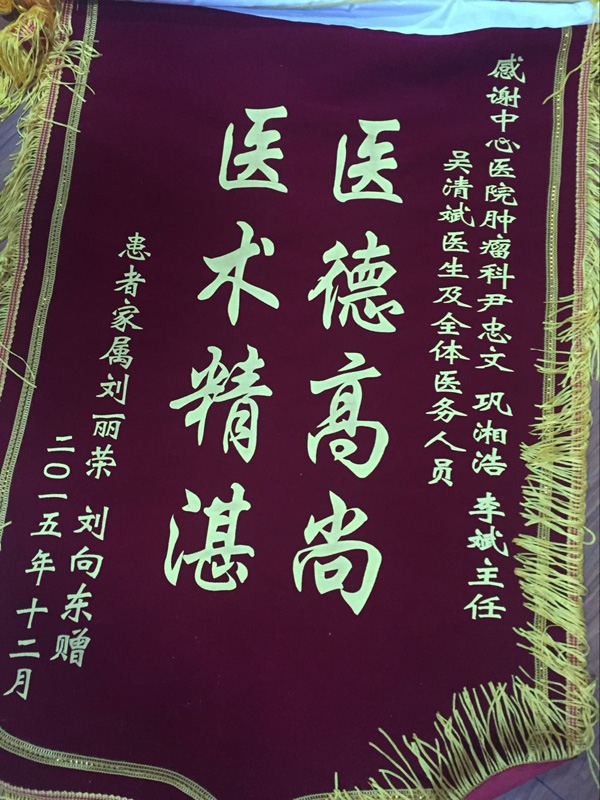 感谢中心医院肿瘤科尹忠文 巩湘浩 李斌主任
吴清斌医生及全体医务人员
医德高尚
医术精湛
患者家属刘丽荣 刘向东赠
二〇一五年十二月